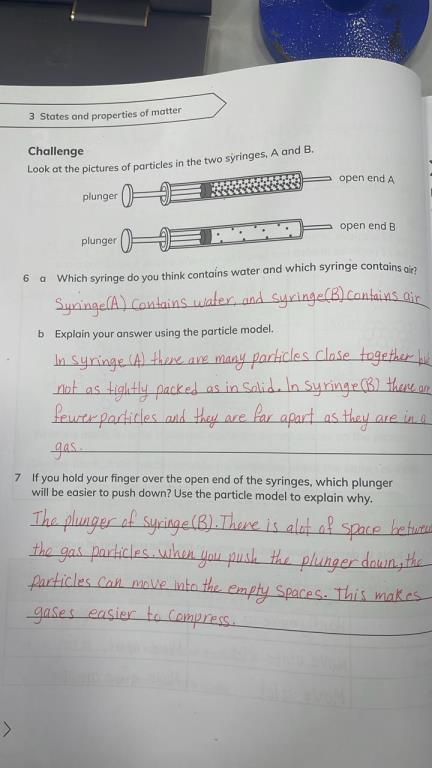 3 States and properties of matter
Challenge
Look at the pictures of particles in the two syringes, A and B.
plunger
open end A
plunger
open end B
6 a Which syringe do you think contains water and which syringe contains air?
Syringe(A) contains water, and syringe(B) contains air
b Explain your answer using the particle model.
In syringe (A) there are many particles close together
not as tightly packed as in solid. In syringe (B) there
fewer particles and they are far apart as they are in a
gas.
7 If you hold your finger over the open end of the syringes, which plunger
will be easier to push down? Use the particle model to explain why.
The plunger of syringe (B). There is alot of space
the gas particles. when you push the plunger down, the
particles can move into the empty spaces. This makes
gases easier to compress.